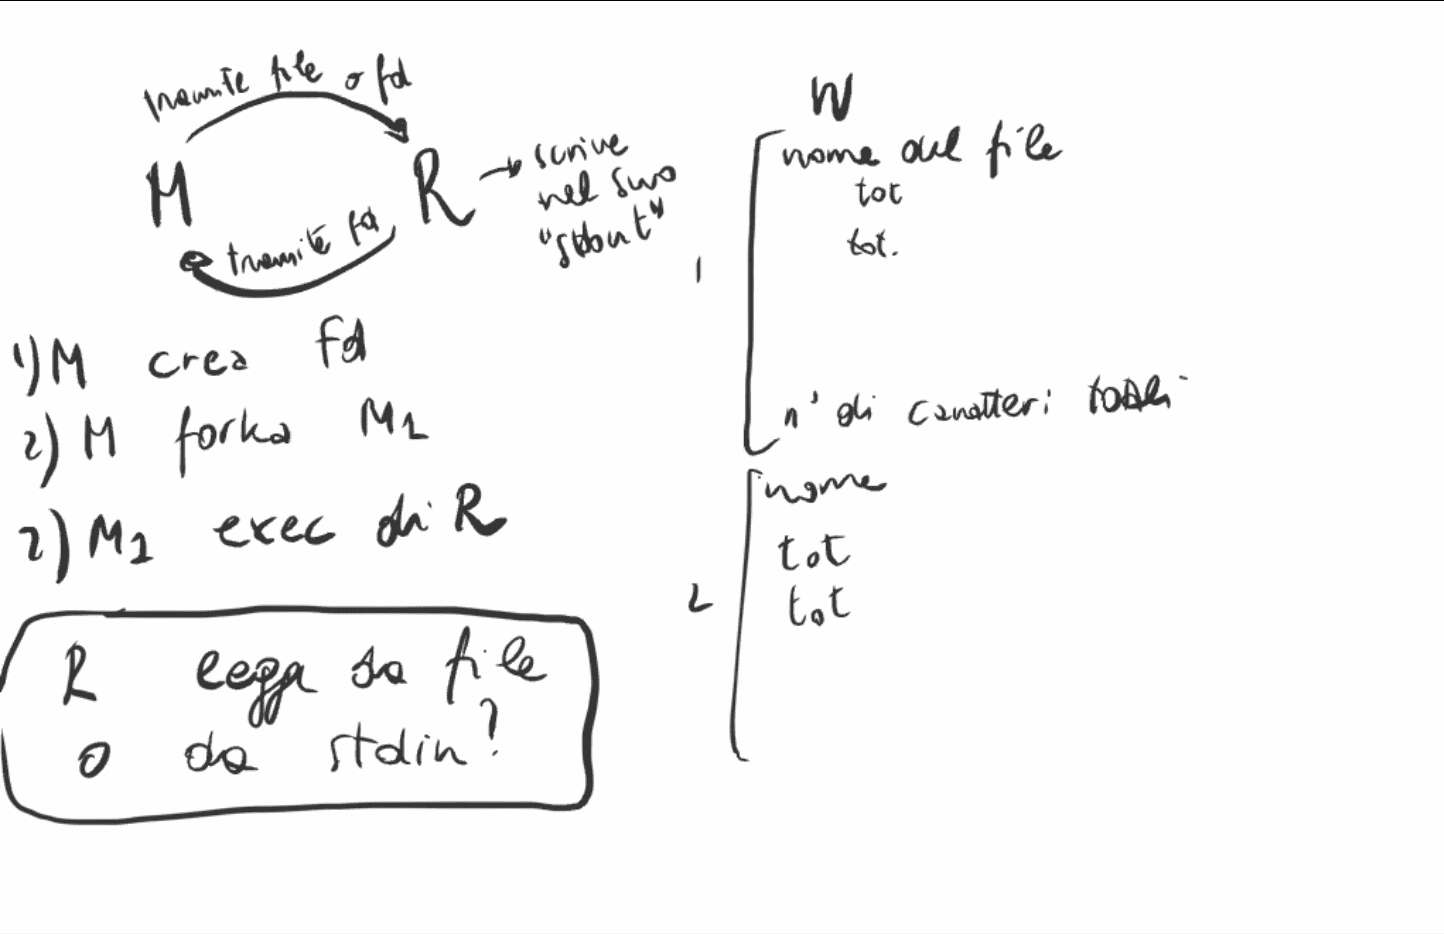 tramite file o fd
M
R → scrive
nel suo
"stdout"
tramite fd
1) M crea fd
2) M forka M1
2) M1 exec di R
R legga da file
o da stdin?
W
1
nome del file
tot
tot.
n° di caratteri
2
nome
tot
tot